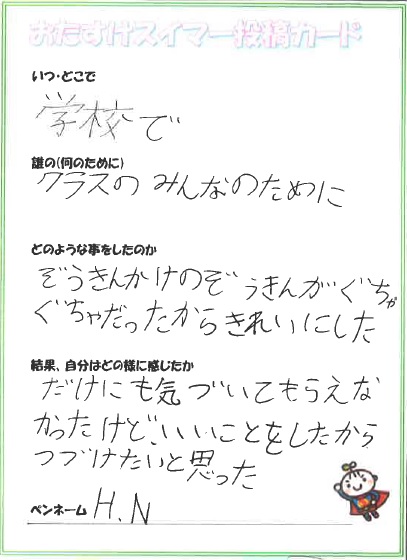 おたすけスイマー投稿カード
いつ・どこで
学校で
誰の(何のために)
クラスのみんなのために
どのような事をしたのか
ぞうきんかけのぞうきんがぐちゃ
ぐちゃだったからきれいにした
結果、自分はどの様に感じたか
だけにも気づいてもらえな
かったけど、いいことをしたから
つづけたいと思った
ペンネーム H.N